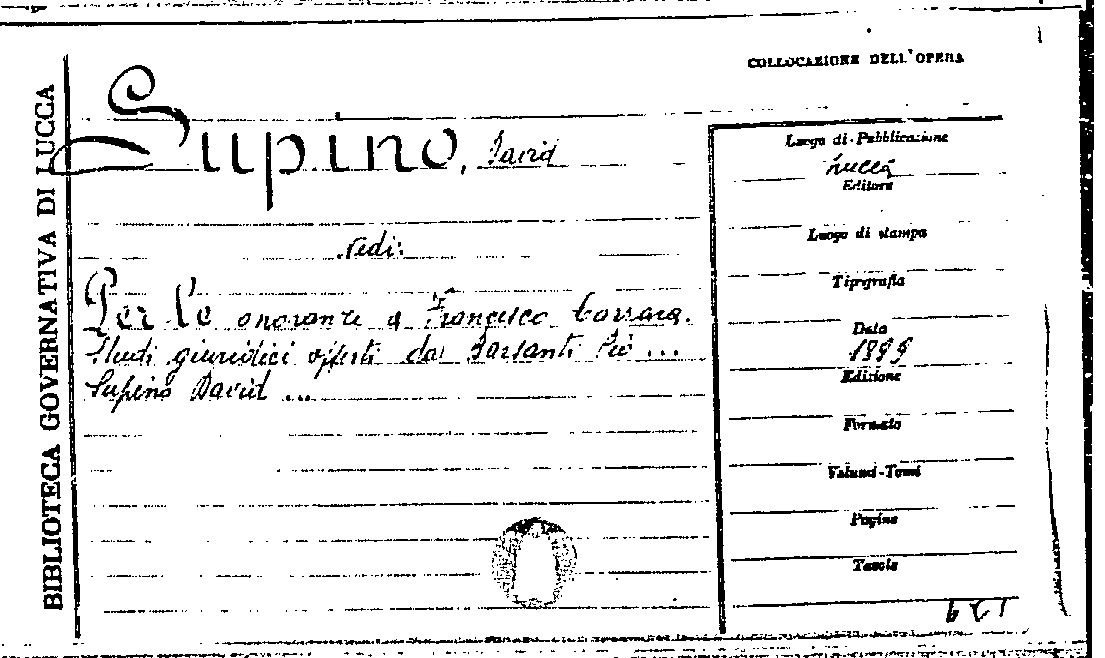 BIBLIOTECA GOVERNATIVA DI LUCCA
COLLOCAZIONE DELL'OPERA
Supino, David
vedi:
Per le onoranze a Francesco Carrara.
Studi giuridici offerti da: Barsanti Pio ...
Supino David ...
Luogo di Pubblicazione
Lucca
Editore
Luogo di stampa
Tipografia
Data
1899
Edizione
Formato
Volumi-Tomi
Pagine
Tavole